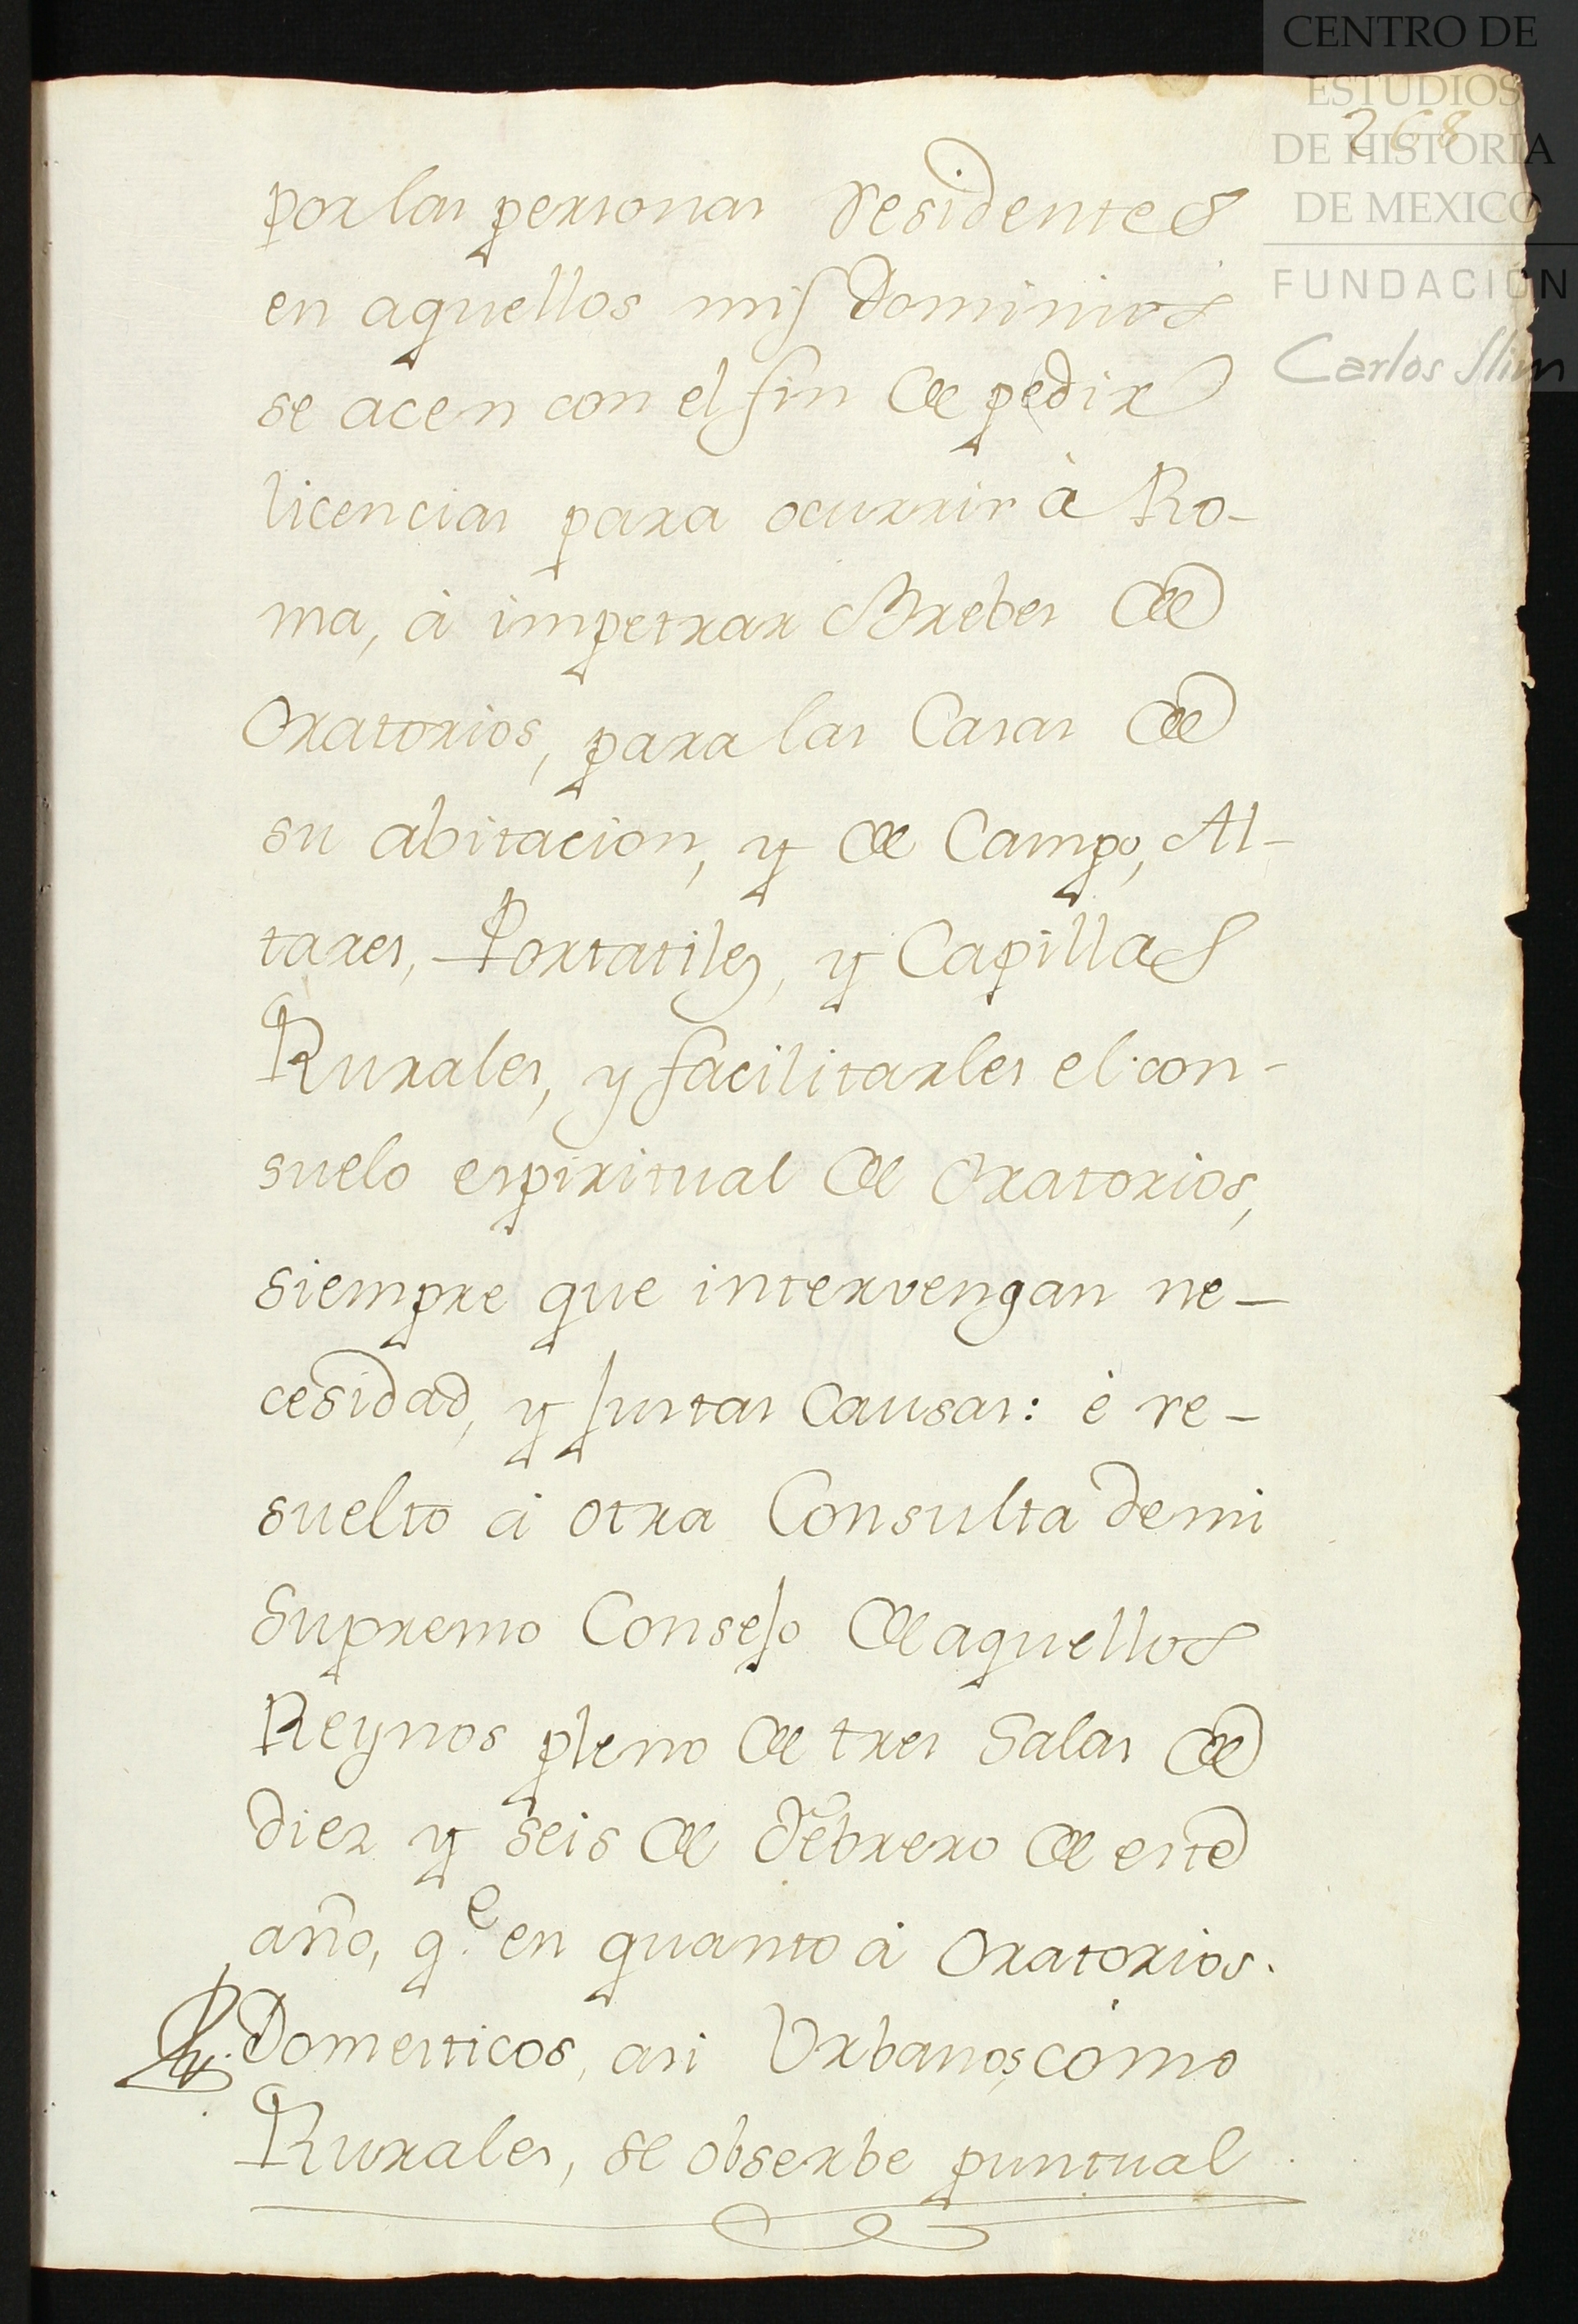 CENTRO DE
ESTUDIOS
DE HISTORIA
DE MEXICO
FUNDACIÓN
Carlos Slim
268
por las personas residentes
en aquellos mis Dominios
se acen con el fin de pedir
licencias para ocurrir à Ro-
ma, à impetrar Brebes de
Oratorios, para las Casas de
su abitacion, y de Campo, Al-
tares, Portatiles, y Capillas
Rurales, y facilitarles el con-
suelo espiritual de Oratorios,
siempre que intervengan ne-
cesidad, y justas Causas: è re-
suelto à otra Consulta de mi
Supremo Consejo de aquellos
Reynos pleno de tres Salas de
diez y seis de Febrero de este
año, q.e en quanto à Oratorios.
Domesticos, asi Urbanos, como
Rurales, se obserbe puntual